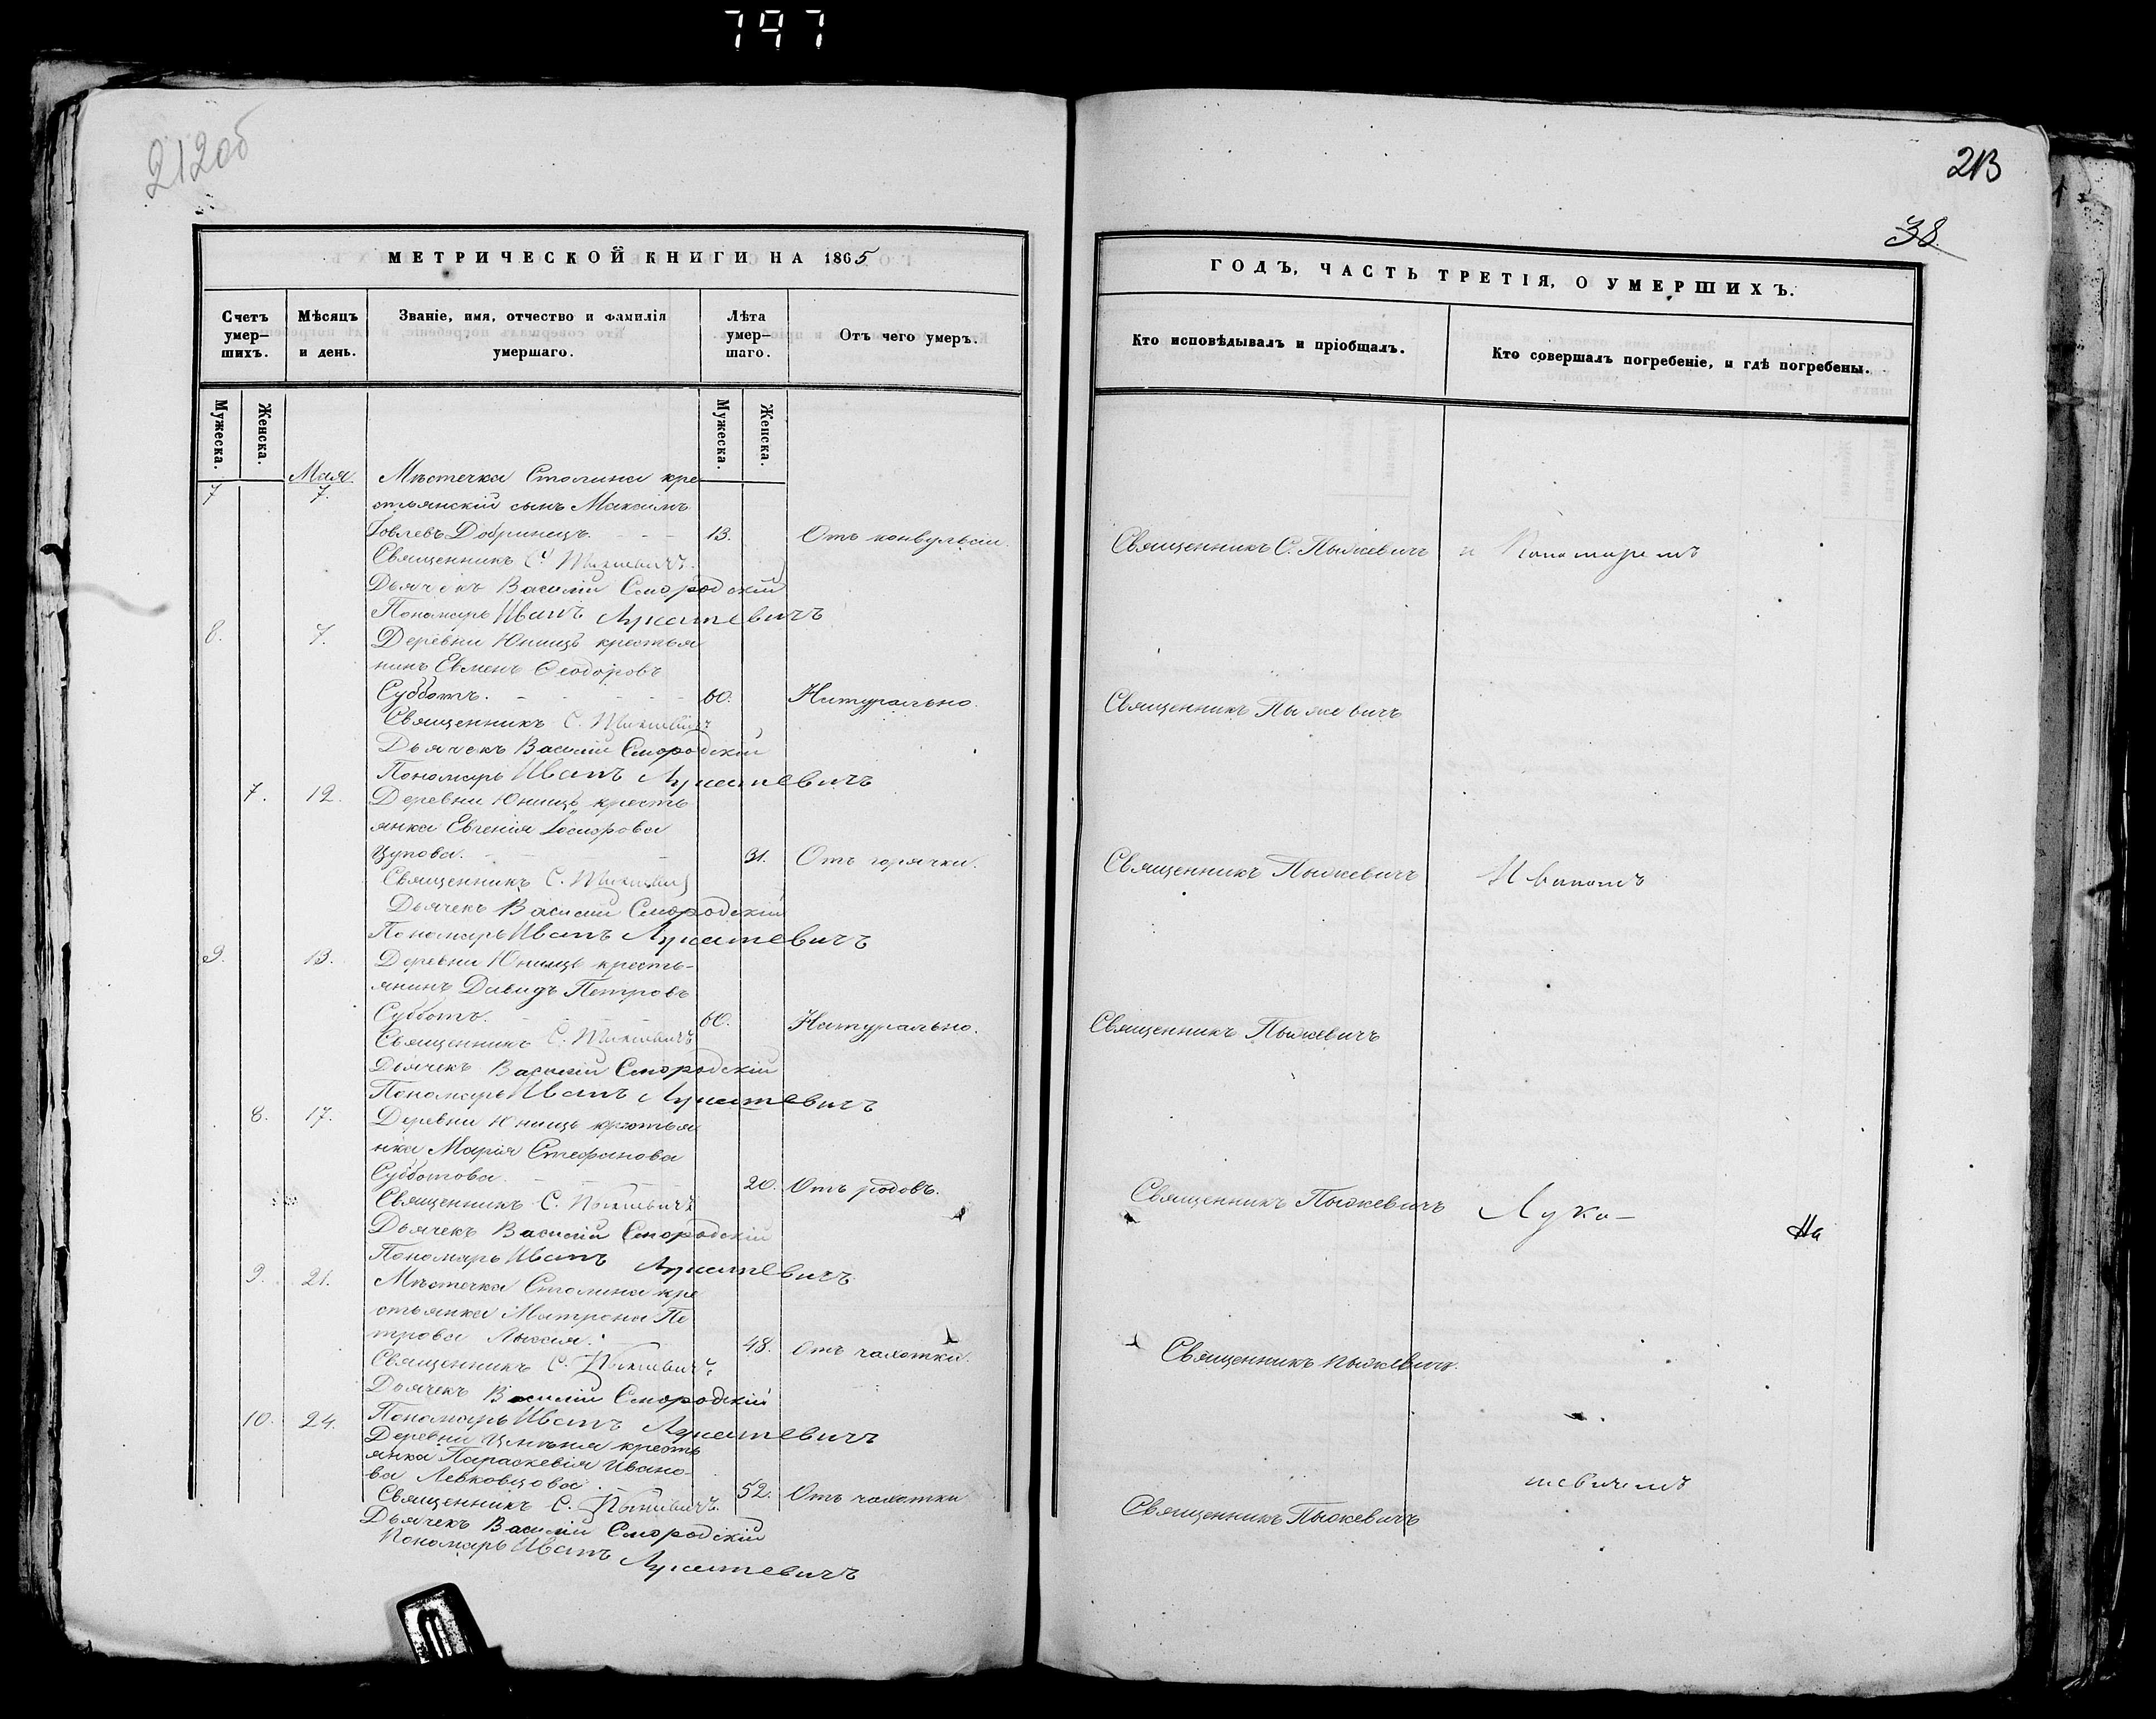 797
212об
МЕТРИЧЕСКОЙ КНИГИ НА 1865
Счетъ умер-шихъ.
Мѣсяцъ и день.
Званіе, имя, отчество и фамилія умершаго.
Лѣта умер-шаго.
Отъ чего умеръ.
Мужеска.
Женска.
Мужеска.
Женска.
Мая.
7 7. Мѣстечка Столина кре
стьянскій сынъ Максимъ
Іовлевъ Добриницъ. 13. Отъ конвульсіи.
Священникъ С. Пыжевичъ.
Дьячекъ Василій Смородскій
Пономарь Иванъ Лукашевичъ
8. 7. Деревни Юнищъ крестья
нинъ Евменъ Ѳеодоровъ
Субботъ. 60. Натурально.
Священникъ С. Пыжевичъ
Дьячекъ Василій Смородскій
Пономарь Иванъ Лукашевичъ
7. 12. Деревни Юнищъ кресть
янка Евгенія
Цупова. 31. Отъ горячки.
Священникъ С. Пыжевичъ
Дьячекъ Василій Смородскій
Пономарь Иванъ Лукашевичъ
9. 13. Деревни Юнищъ кресть-
янинъ Давидъ Петровъ
Субботъ. 60. Натурально.
Священникъ С. Пыжевичъ
Дьячекъ Василій Смородскій
Пономарь Иванъ Лукашевичъ
8. 17. Деревни Юнищъ крестья
нка Марія Стефанова
Субботова. 20. Отъ родовъ.
Священникъ С. Пыжевичъ
Дьячекъ Василій Смородскій
Пономарь Иванъ Лукашевичъ
9. 21. Мѣстечка Столина кре
стьянка Матрона Пе
трова 48. Отъ чахотки.
Священникъ С. Пыжевичъ
Дьячекъ Василій Смородскій
Пономарь Иванъ Лукашевичъ
10. 24. Деревни кресть
янка Параскевія Ивано-
ва Левковцова. 52. Отъ чахотки
Священникъ С. Пыжевичъ.
Дьячекъ Василій Смородскій
Пономарь Иванъ Лукашевичъ
213
38.
ГОДЪ, ЧАСТЬ ТРЕТІЯ, О УМЕРШИХЪ.
Кто исповѣдывалъ и пріобщалъ.
Кто совершалъ погребеніе, и гдѣ погребены.
Священникъ С. Пыжевичъ и Пономаремъ
Священникъ Пыжевичъ
Священникъ Пыжевичъ Иваномъ
Священникъ Пыжевичъ
Священникъ Пыжевичъ Лука-
На
Священникъ Пыжевичъ.
шевичемъ
Священникъ Пыжевичъ